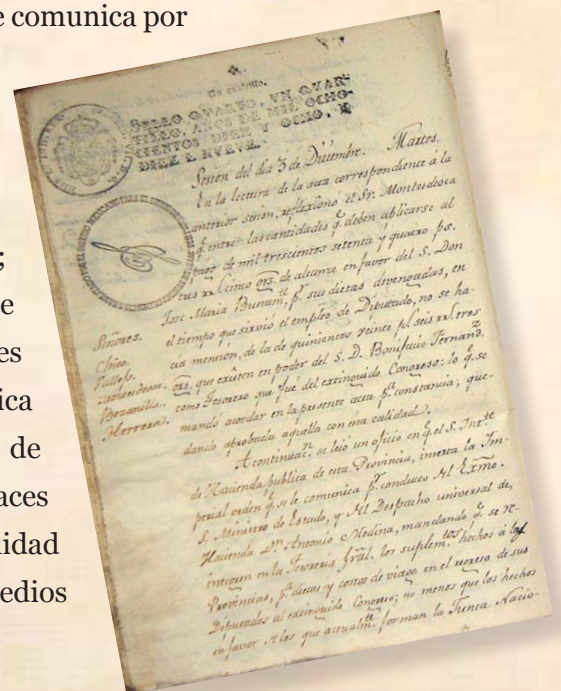 e comunica por
;
e
es
ica
de
aces
idad
edios
Un quartillo.
SELLO QUARTO, VN QUAR-
TILLO, AÑOS DE MIL OCHO-
CIENTOS DIEZ Y OCHO, Y
DIEZ E NVEVE.
Sesion del dia 3 de Diciembre. Martes.
En la lectura de la acta correspondiente à la
anterior sesion, reflexionó el Sr. Montesdeoca
q.e entre las cantidades q.e deben aplicarse al
pago de mil trescientos setenta y quatro p.s
tres rr.s cinco grs. de alcance en favor del S. Don
José Maria p.r sus dietas devengadas, en
el tiempo que sirvió el empleo de Diputado, no se ha-
cia mención, de la de quinientos veinte ps. seis rr.s tres
grs, que existen en poder del S. D. Bonifacio Fernand.z
como Tesorero que fué del extinguido Congreso: lo q.e se
mandó acordar en la presente acta p.a constancia; que-
dando aprobada aquella con esta calidad.
Señores.
Chico.
Montesdeoca.
Herrera.
A continuac.n se leió un oficio en q.e el S. Int.te
de Hacienda publica de esta Provincia, inserta la Im-
perial orden q.e se le comunica p.r conducto del Exmo.
S. Ministro de Estado, y del Despacho universal de,
Hacienda D.n Antonio Medina, mandando q.e se re-
integren en la Tesoreria Gral. los suplem.tos hechos á las
Provincias, p.a dietas y costos de viage en el regreso de sus
Diputados al extinguido Congreso; no menos que los hechos
en favor de los que actualm.te forman la Junta Nacio-